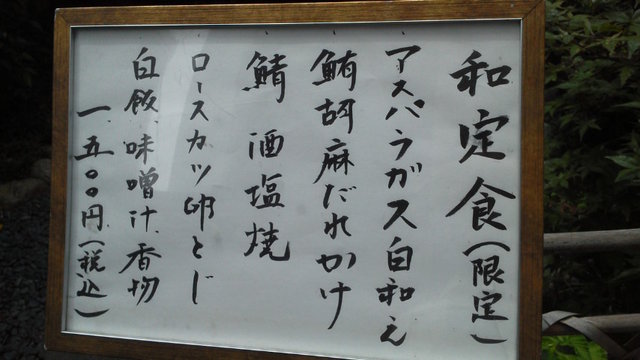 和定食(限定)
アスパラガス白和え
鮪胡麻だれかけ
鯖酒塩焼
ロースカツ卵とじ
白飯、味噌汁、香物
一、五〇〇円(税込)